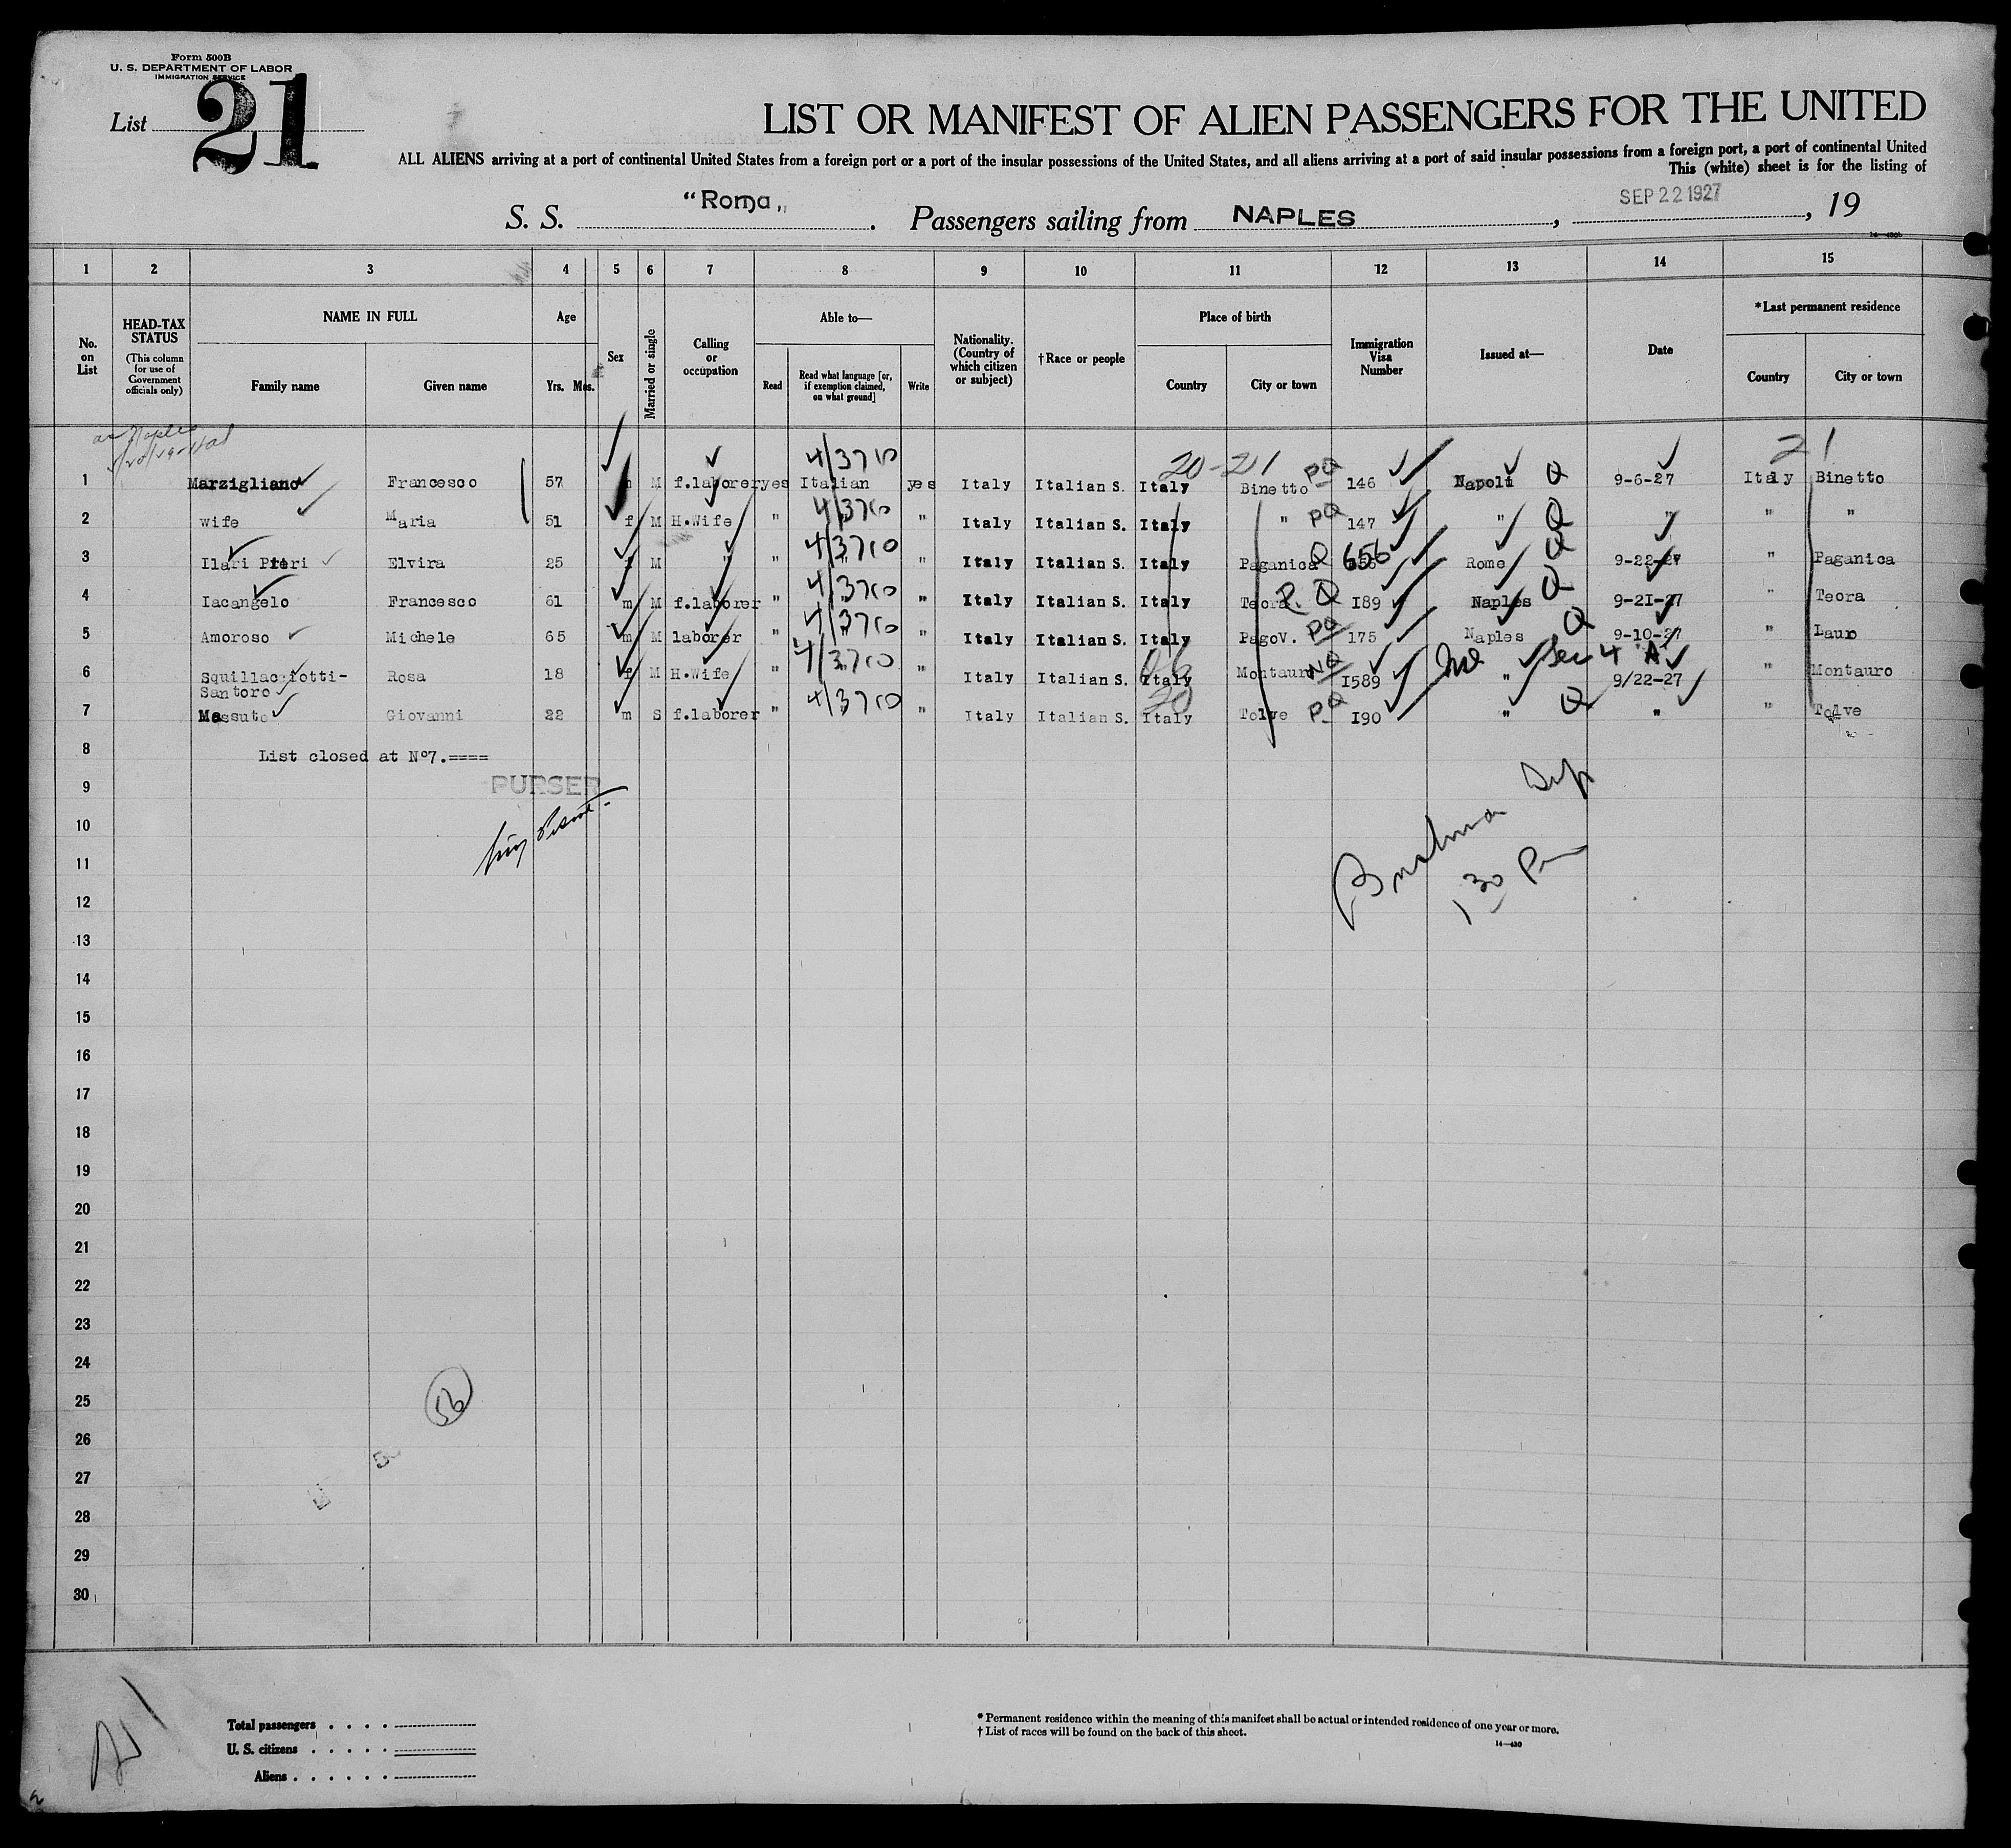 Form 500B
U. S. DEPARTMENT OF LABOR
IMMIGRATION SERVICE
List 21
LIST OR MANIFEST OF ALIEN PASSENGERS FOR THE UNITED
ALL ALIENS arriving at a port of continental United States from a foreign port or a port of the insular possessions of the United States, and all aliens arriving at a port of said insular possessions from a foreign port, a port of continental United
This (white) sheet is for the listing of
S. S. "Roma". Passengers sailing from NAPLES, SEP 22 1927, 19
1 2 3 4 5 6 7 8 9 10 11 12 13 14 15
No. on List
HEAD-TAX STATUS (This column for use of Government officials only)
NAME IN FULL
Family name
Given name
Age
Yrs. Mos.
Sex
Married or single
Calling or occupation
Able to—
Read
Read what language [or, if exemption claimed, on what ground]
Write
Nationality. (Country of which citizen or subject)
†Race or people
Place of birth
Country
City or town
Immigration Visa Number
Issued at—
Date
*Last permanent residence
Country
City or town
20-21
21
1 Marzigliano Francesco 57 M f.laborer yes Italian 4/3710 yes Italy Italian S. Italy Binetto PQ 146 Napoli Q 9-6-27 Italy Binetto
2 wife Maria 51 f M H.Wife " 4/3710 " Italy Italian S. Italy " PQ 147 " Q " " "
3 Ilari Pieri Elvira 25 f M " " 4/3710 " Italy Italian S. Italy Paganica Q 656 Rome Q 9-22-27 " Paganica
4 Iacangelo Francesco 61 m M f.laborer " 4/3710 " Italy Italian S. Italy Teora P.Q I89 Naples Q 9-2I-27 " Teora
5 Amoroso Michele 65 m M laborer " 4/3710 " Italy Italian S. Italy PagoV. PQ 175 Naples Q 9-10-27 " Lauro
6 Squillacefotti-Santoro Rosa 18 f M H.Wife " 4/3710 " Italy Italian S. Italy Montauro NQ I589 " Sec 4 A 9/22-27 " Montauro
7 Massuto Giovanni 22 m S f.laborer " 4/3710 " Italy Italian S. Italy Tolve PQ I90 " Q " " Tolve
8 List closed at Nº7.====
9 PURSER
10
11
12
13
14
15
16
17
18
19
20
21
22
23
24
25
26
27
28
29
30
1 30 Pm
56
Total passengers
U. S. citizens
Aliens
* Permanent residence within the meaning of this manifest shall be actual or intended residence of one year or more.
† List of races will be found on the back of this sheet.
14—430